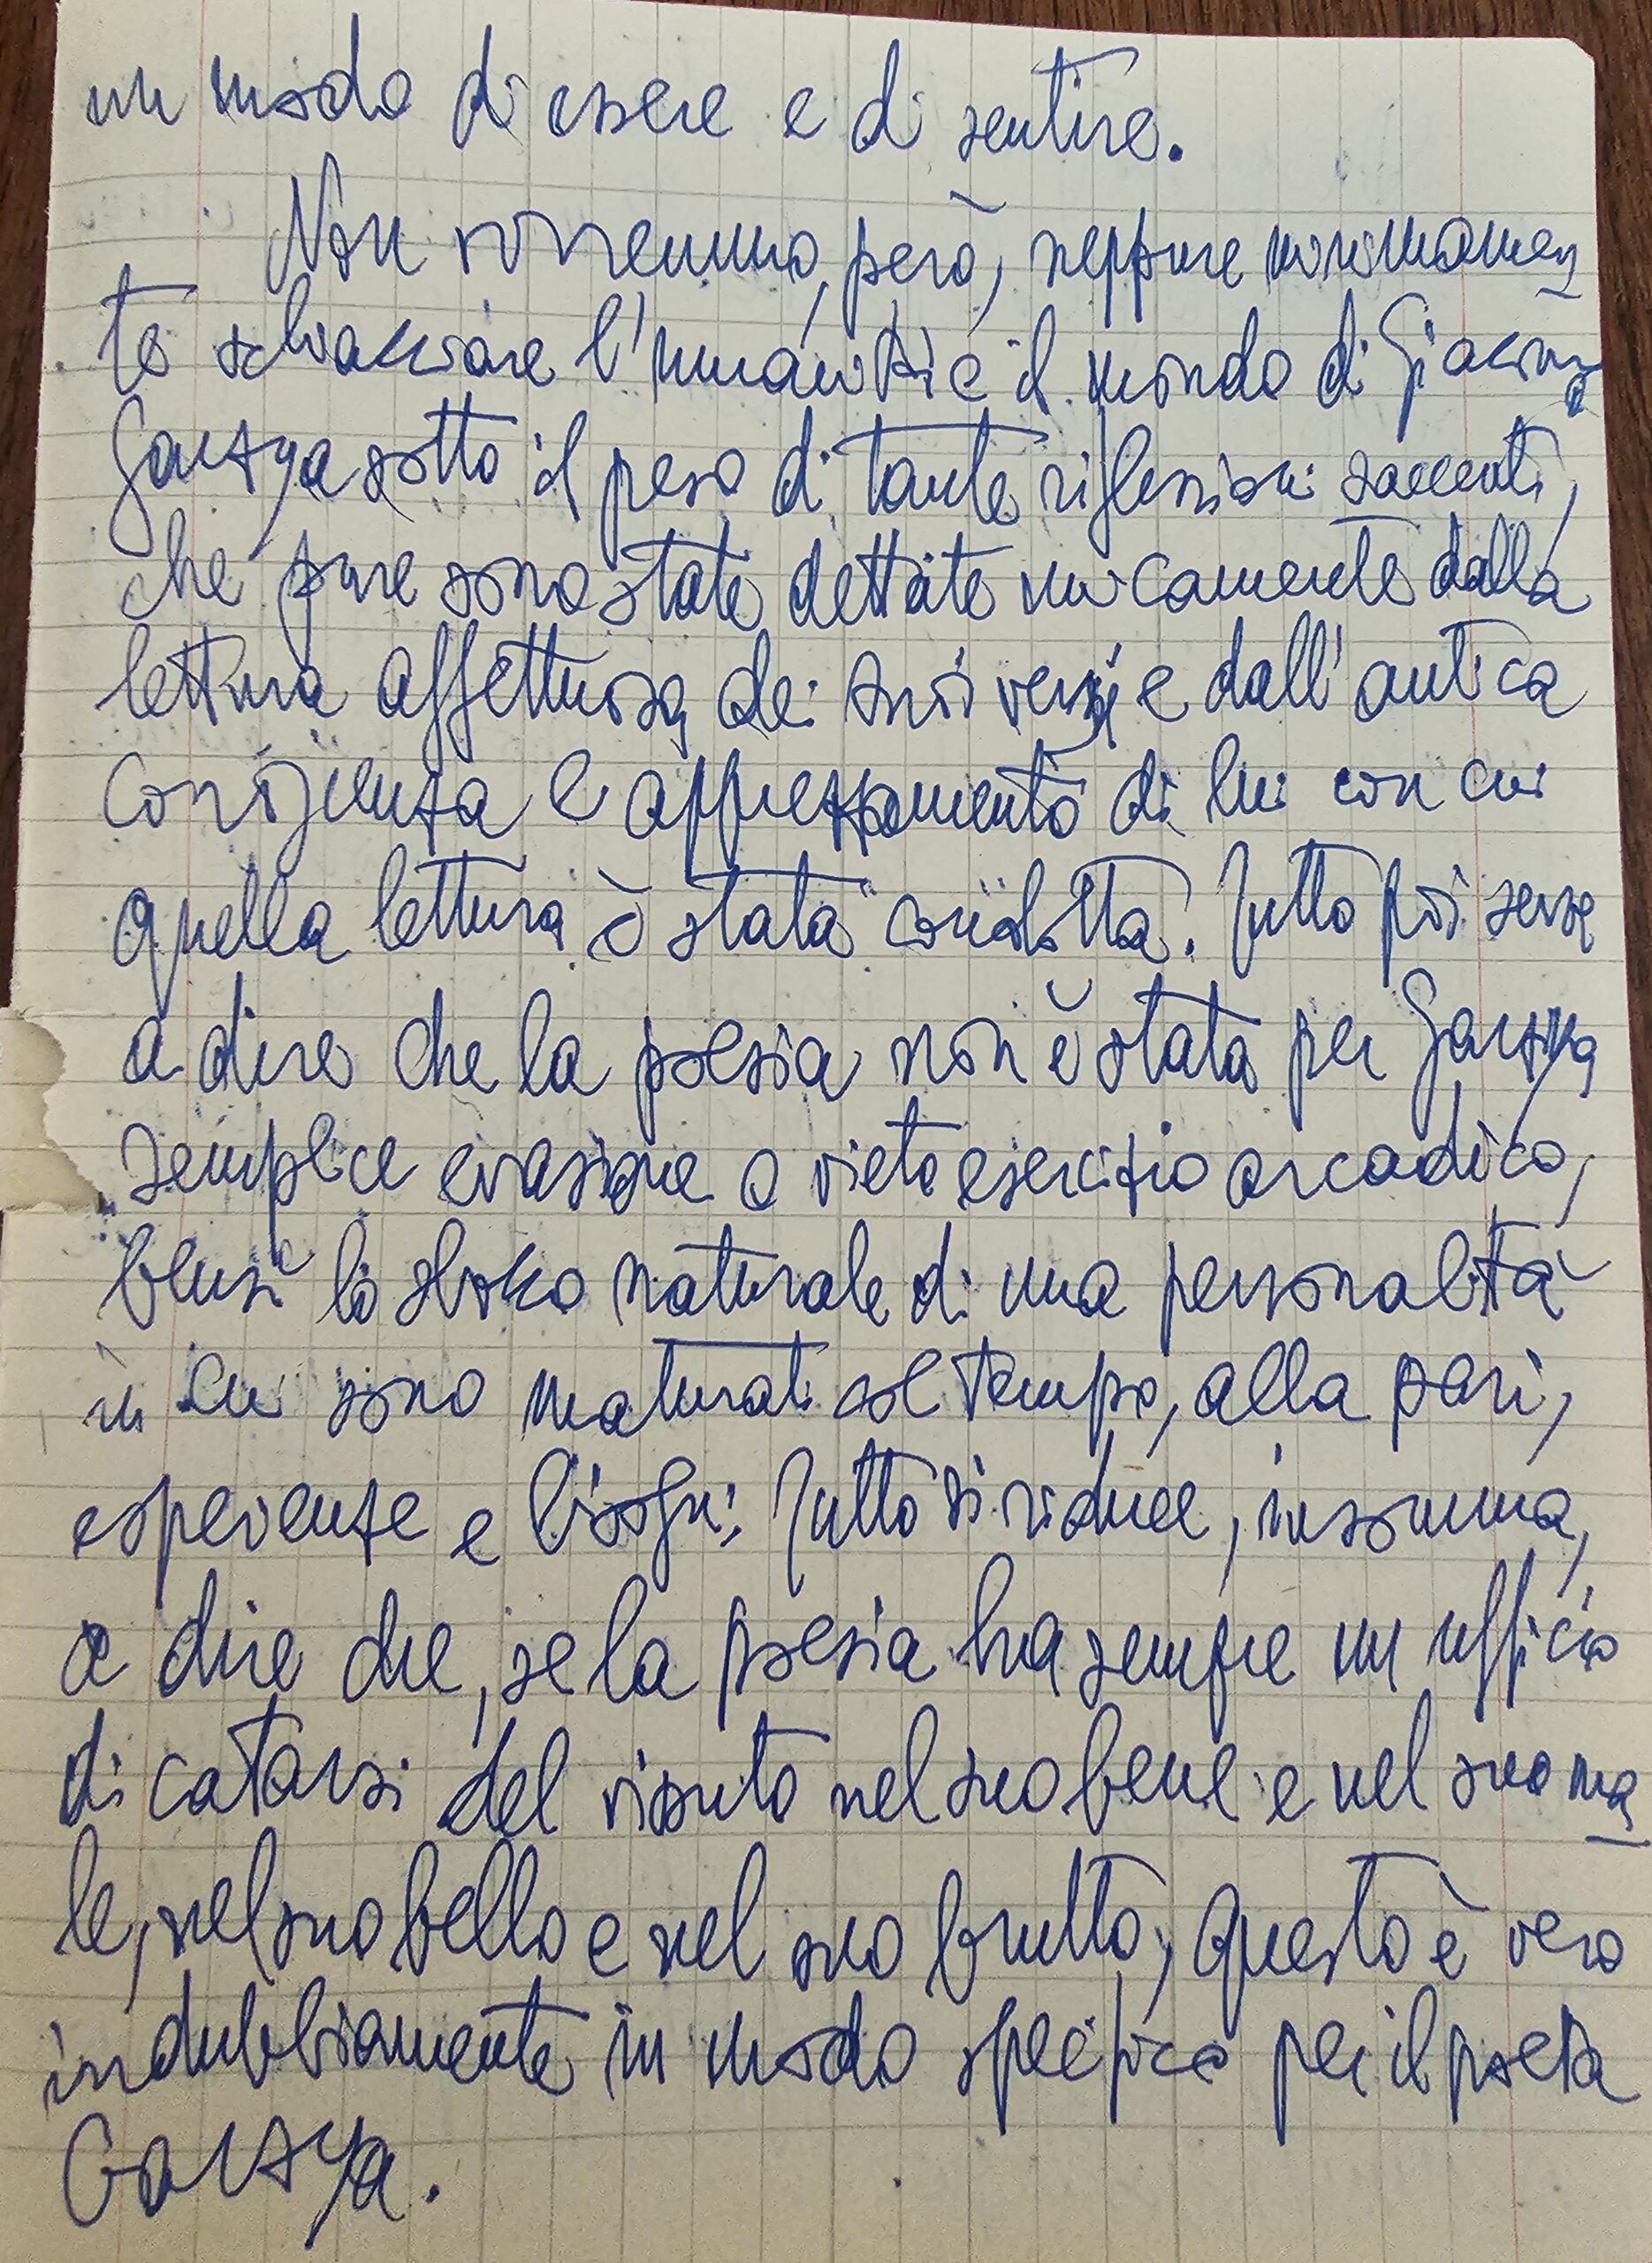 un modo di essere e di sentire.
Non vorremmo, però, neppure minimamen
te schiacciare l'umanità e il mondo di Giacomo
Garzya sotto il peso di tante riflessioni saccenti,
che pure sono state dettate unicamente dalla
lettura affettuosa dei suoi versi e dall'antica
conoscenza e apprezzamento di lui con cui
quella lettura è stata condotta. Tutto poi serve
a dire che la poesia non è stata per Garzya
semplice evasione o vieto esercizio arcadico,
bensì lo sbocco naturale di una personalità
in cui sono maturati col tempo, alla pari,
esperienze e bisogni. Tutto si riduce, insomma,
a dire che, se la poesia ha sempre un ufficio
di catarsi del vissuto nel suo bene e nel suo ma
le, nel suo bello e nel suo brutto, questo è vero
indubbiamente in modo specifico per il poeta
Garzya.